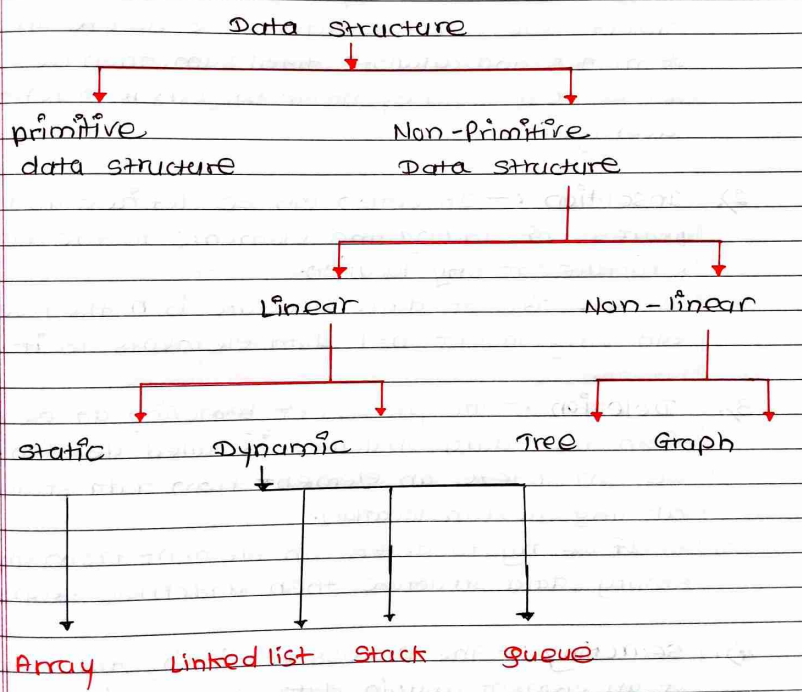 Data structure
primitive
data structure
Non-Primitive
Data structure
Linear
Non-linear
static
Dynamic
Tree
Graph
Array
Linked list
Stack
queue